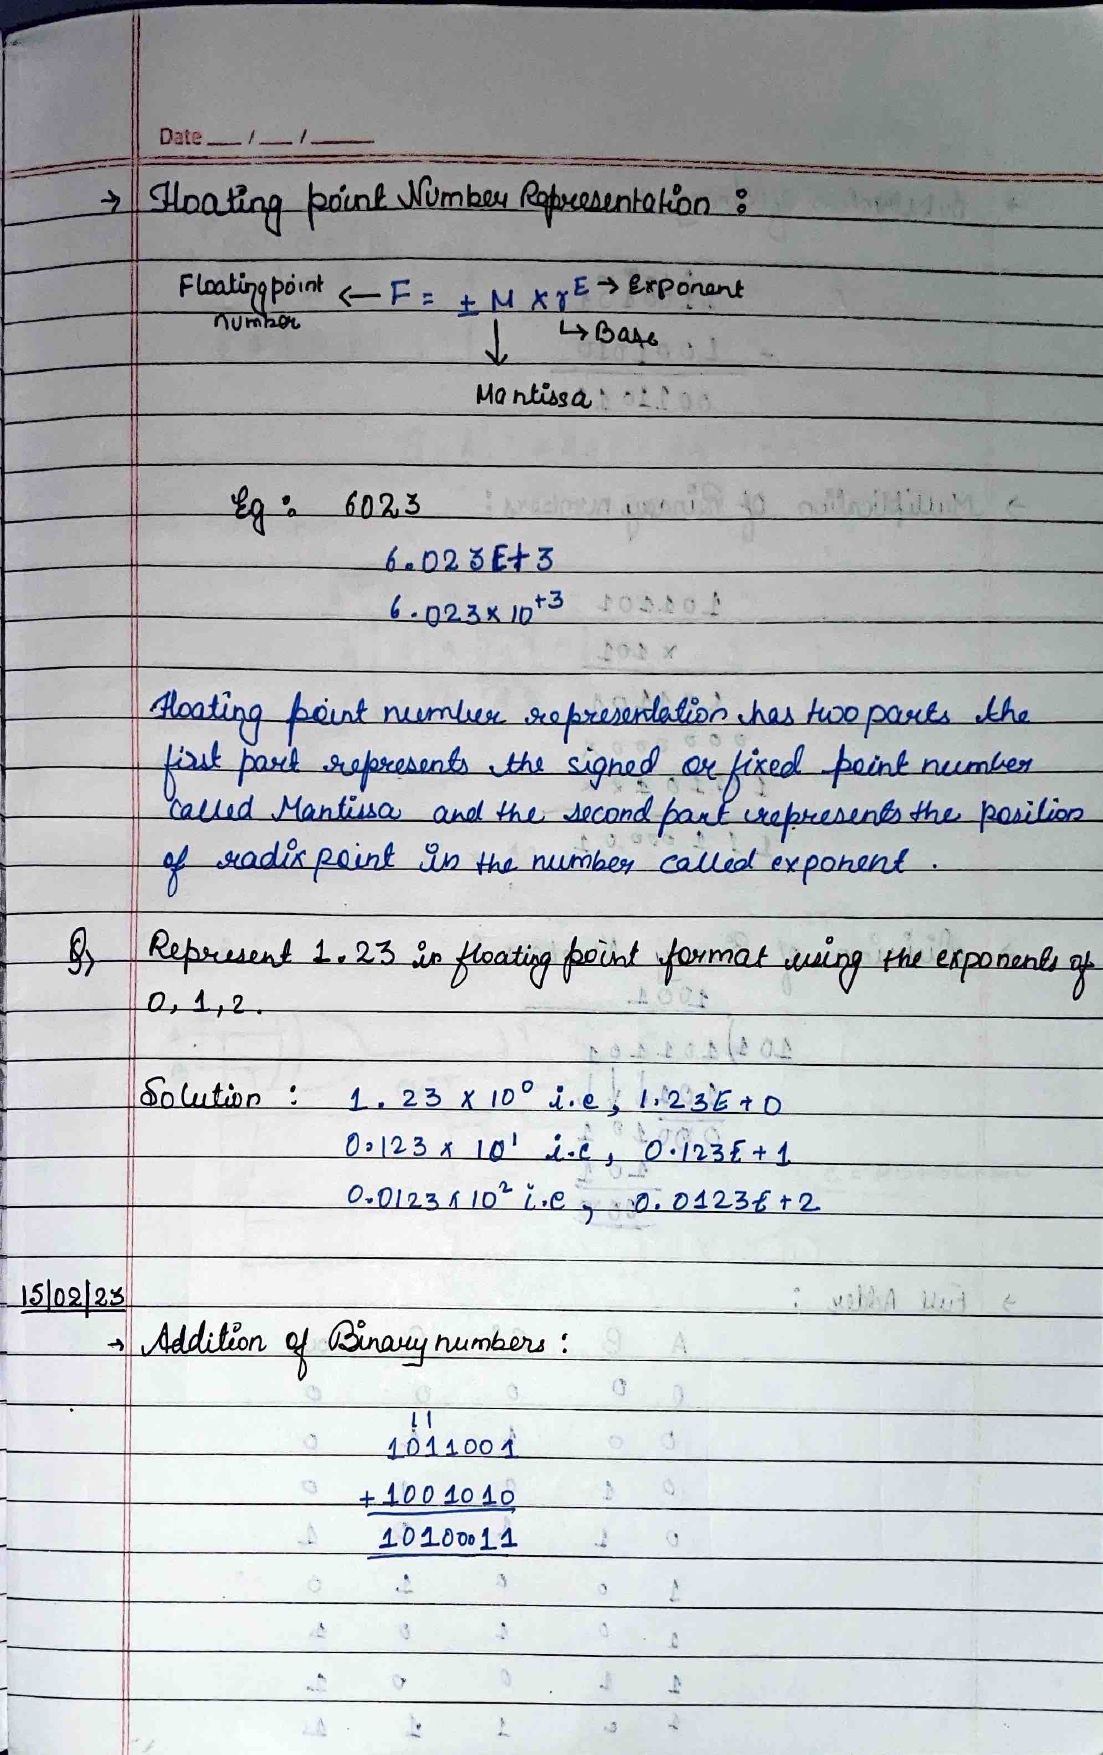 Date __/__/____
→ Floating point Number Representation :
Floating point number ← F = ± M × r^E → Exponent
↳ Base
↓
Mantissa
Eg : 6023
6.023E+3
6.023 × 10^+3
Floating point number representation has two parts the
first part represents the signed or fixed point number
called Mantissa and the second part represents the position
of radix point in the number called exponent.
Q) Represent 1.23 in floating point format using the exponents of
0, 1, 2.
Solution : 1.23 × 10^0 i.e, 1.23E+0
0.123 × 10^1 i.e, 0.123E+1
0.0123 × 10^2 i.e, 0.0123E+2
15/02/23
→ Addition of Binary numbers :
11
1011001
+1001010
10100011